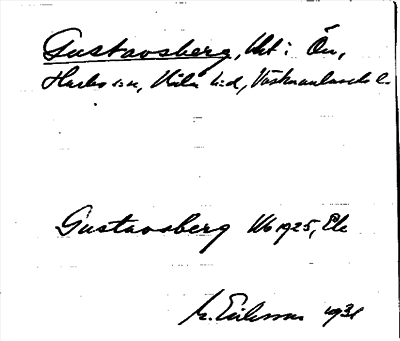 Gustavsberg, Utt: Ön,
Harbo sn, Våla hd, Västmanlands l.
Gustavsberg Ub 1925, Ek
M. Eriksson 1931